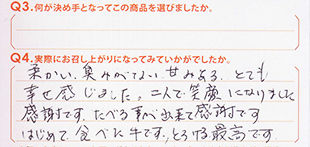 Q3.何が決め手となってこの商品を選びましたか。
Q4.実際にお召し上がりになってみていかがでしたか。
柔かい、臭みがてない 甘みある、とても
幸せ感じました。二人で笑顔になりました
感謝です。たべる事が出来て感謝です
はじめて、食べた牛です。とろける最高です